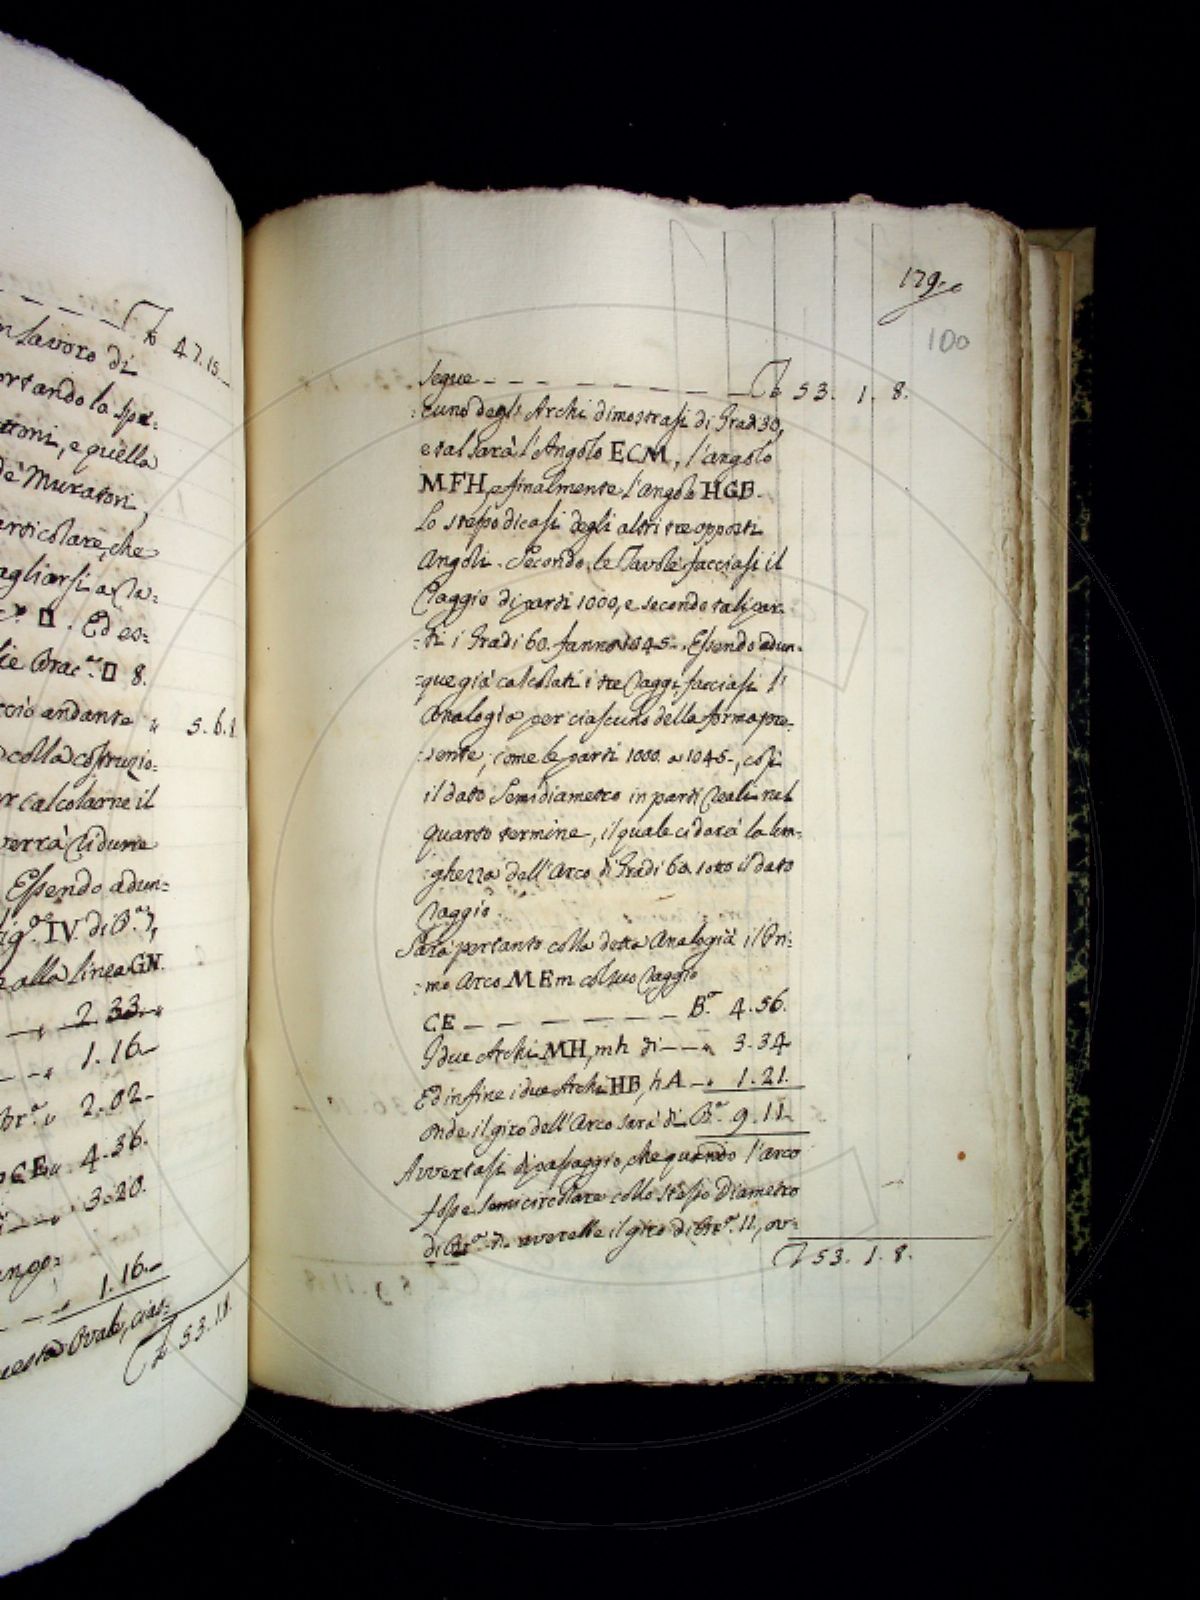 ₶ 47.15.
n Lavoro di
ortando la spe:
ttoni, e quella
de' Muratori,
articolare, che
agliarsi a Ra:
□. Ed es:
lie Brac.ª □ 8.
ccio andante " 5.6.8
colla costruzio:
r calcolarne il
verrà ridurre
Essendo adun:
fig.ª IV. di B.ª 7,
e alla linea GN.
2.33.
1.16.
br.ª " 2.02.
CE " 4.36.
3.20.
ango:
1.16.
uesta Ovale, cias:
₶ 53.1.8.
179.
100
Segue ₶ 53. 1. 8.
:cuno degli Archi dimostrasi di Gradi 30,
e tal sarà l'Angolo ECM, l'angolo
MFH, e finalmente l'angolo HGB.
Lo stesso dicasi degli altri tre opposti
Angoli. Secondo le Tavole facciasi il
Raggio di parti 1000, e secondo tali par:
:ti i Gradi 60. fanno 1045. Essendo adun:
:que già calcolati i tre Raggi facciasi l'
Analogia per ciascuno della forma pre:
:sente; come le parti 1000. a 1045., così
il dato Semidiametro in parti Reali nel
quarto termine, il quale ci darà la lun:
:ghezza dell'Arco di Gradi 60. sotto il dato
Raggio.
Sarà pertanto colla detta Analogia il Pri:
:mo Arco MEm col suo Raggio
CE B.ª 4.56.
I due Archi MH, mh di " 3.34
Ed in fine i due Archi HB, hA " 1.21.
onde il giro dell'Arco sarà di B.ª 9.11.
Avvertasi di passaggio, che quando l'arco
fosse semicircolare collo stesso Diametro
di Br.ª 7. averebbe il giro di Br.ª 11, ov:
₶ 53. 1. 8.